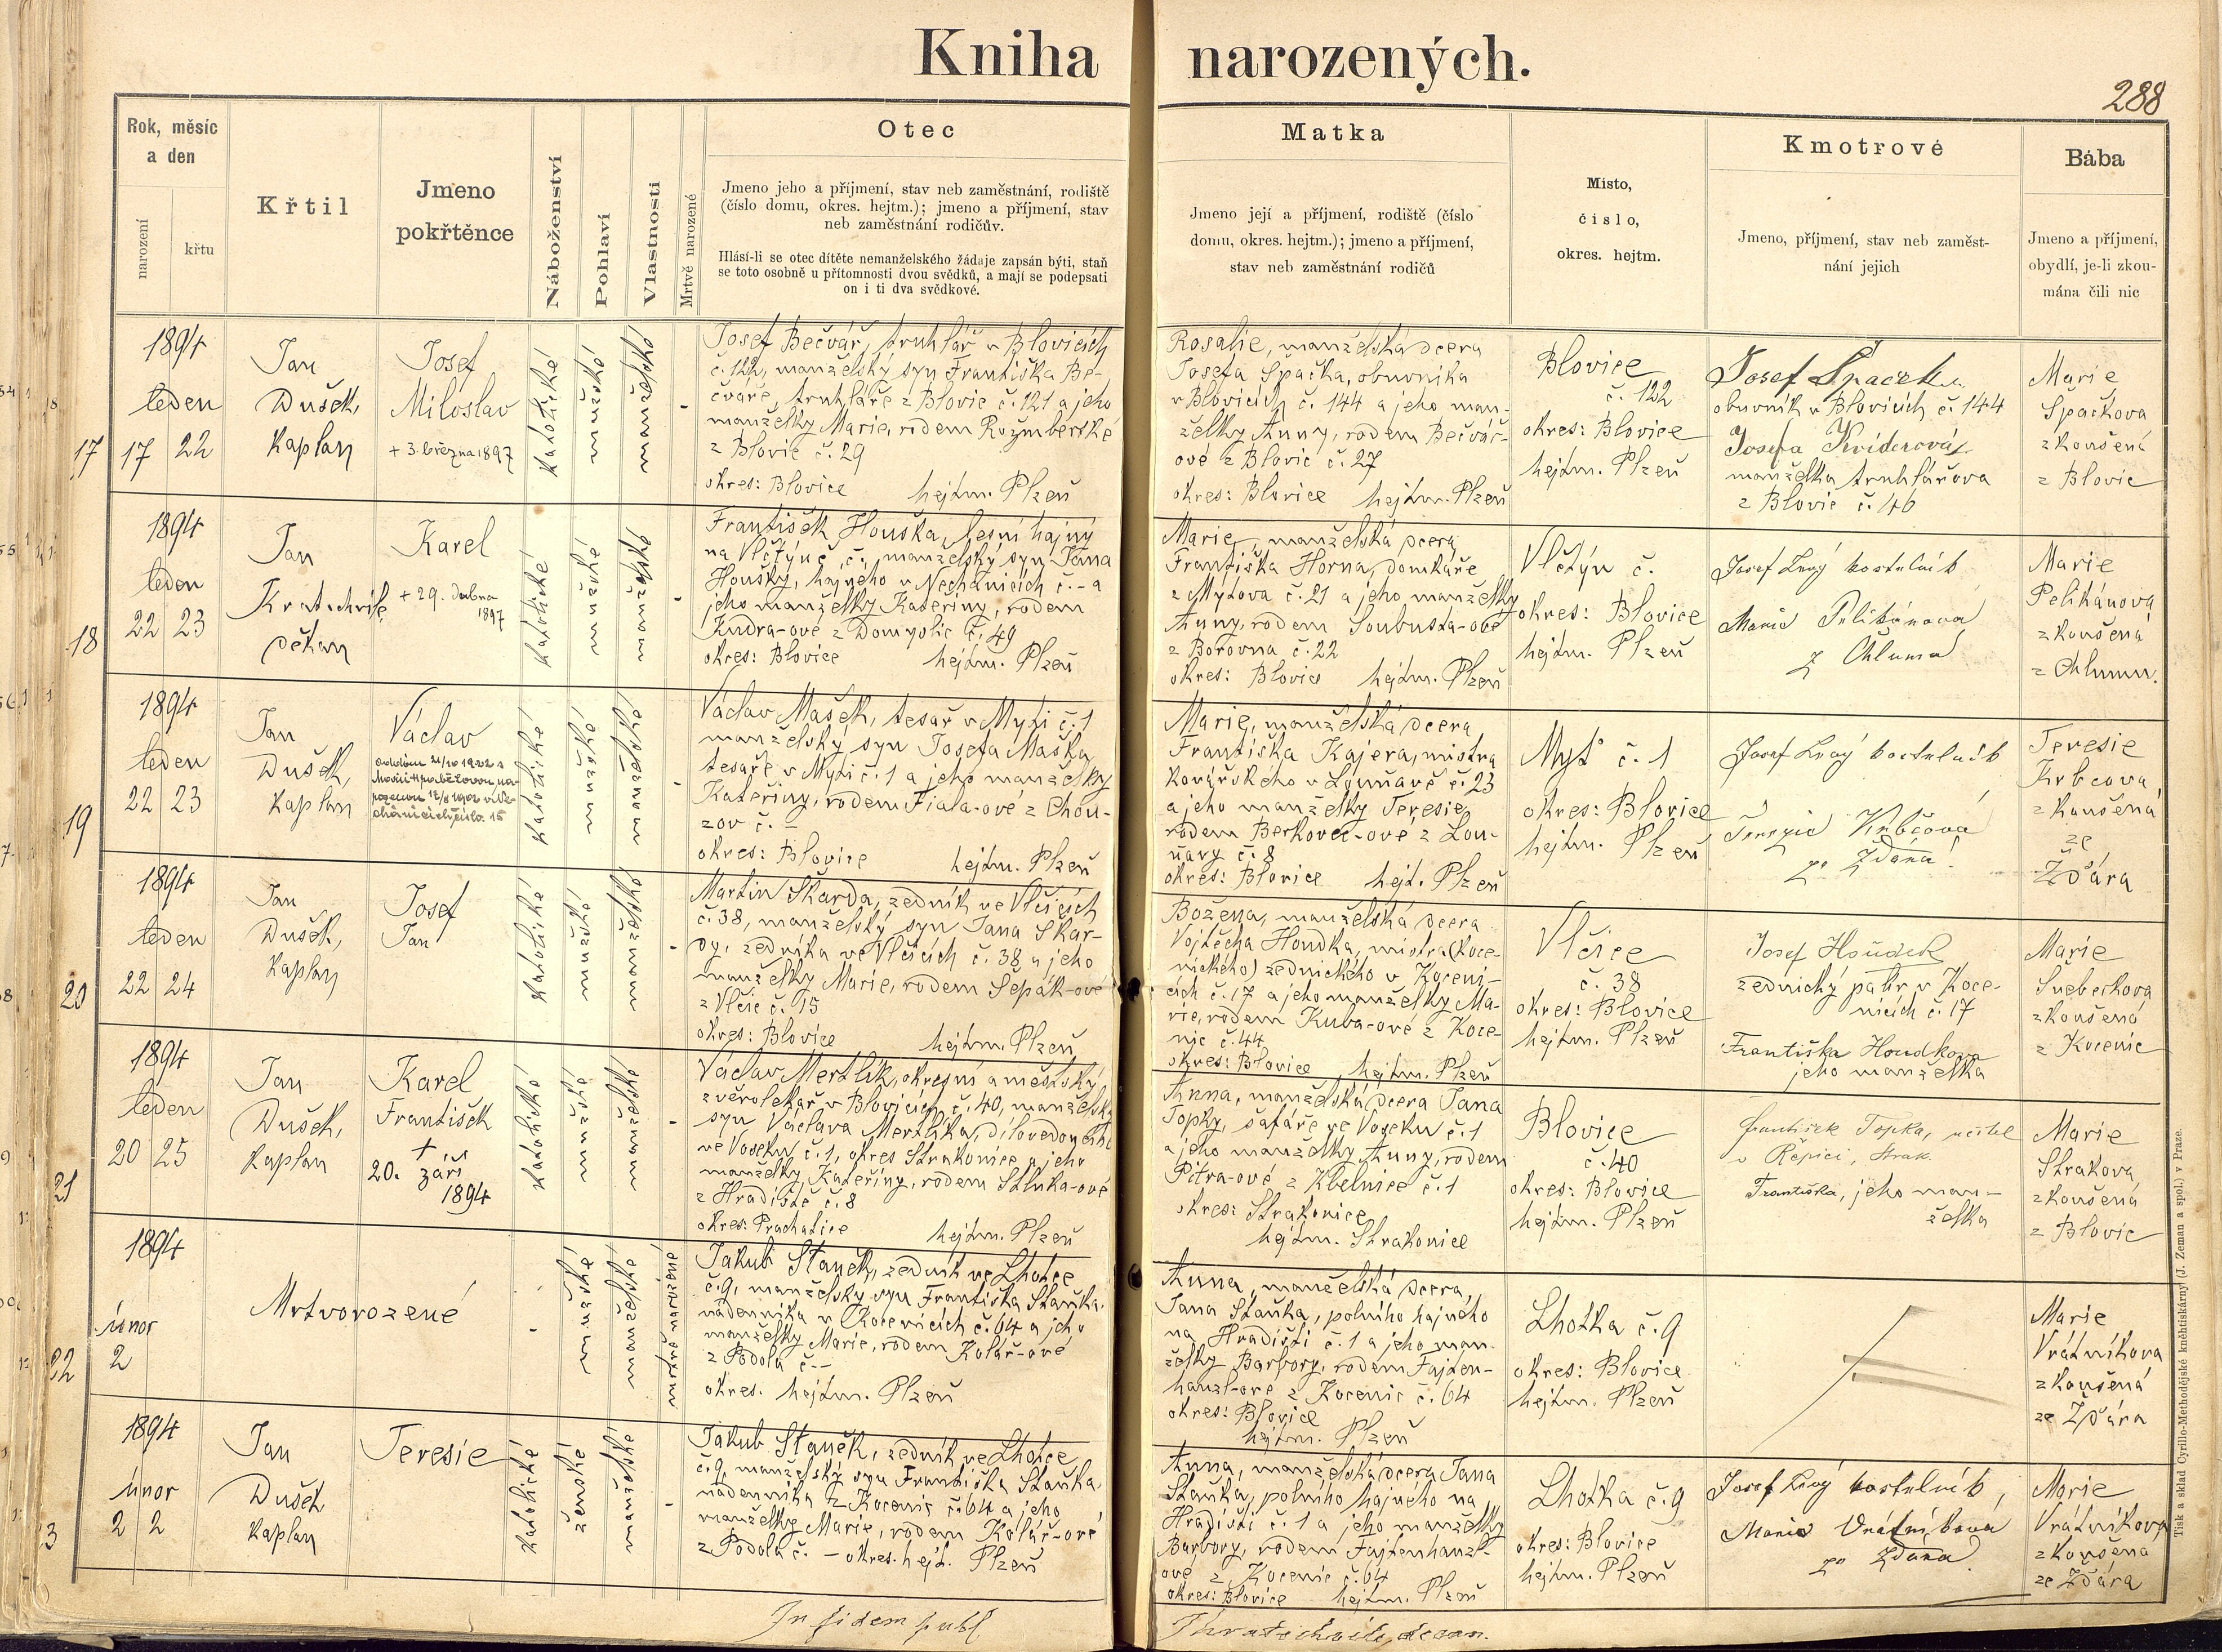 Kniha narozených.
288
Rok, měsíc
a den
narození
křtu
Křtil
Jmeno
pokřtěnce
Náboženství
Pohlaví
Vlastnosti
Mrtvě narozené
Otec
Jmeno jeho a příjmení, stav neb zaměstnání, rodiště
(číslo domu, okres. hejtm.); jmeno a příjmení, stav
neb zaměstnání rodičův.
Hlásí-li se otec dítěte nemanželského žádaje zapsán býti, staň
se toto osobně u přítomnosti dvou svědků, a mají se podepsati
on i ti dva svědkové.
Matka
Jmeno její a příjmení, rodiště (číslo
domu, okres. hejtm.); jmeno a příjmení,
stav neb zaměstnání rodičů
Místo,
číslo,
okres. hejtm.
Kmotrové
Jmeno, příjmení, stav neb zaměst-
nání jejich
Bába
Jmeno a příjmení,
obydlí, je-li zkou-
mána čili nic
17
1894
leden
17 22
Jan
Dušek,
kaplan
Josef
Miloslav
+ 3. března 1897
katolické
mužské
manželské
-
Josef Bečvář, truhlář v Blovicích
č. 122, manželský syn Františka Be-
čváře, truhláře z Blovic č. 121 a jeho
manželky Marie, rodem Rožmberské
z Blovic č. 29
okres: Blovice hejtm. Plzeň
Rosalie, manželská dcera
Josefa Špačka, obuvníka
v Blovicích č. 144 a jeho man-
želky Anny, rodem Bečvář-
ové z Blovic č. 27
okres: Blovice hejtm. Plzeň
Blovice
č. 122
okres: Blovice
hejtm. Plzeň
Josef Špaček
obuvník v Blovicích č. 144
Josefa Kviderová
manželka truhlářova
z Blovic č. 46
Marie
Špačkova
zkoušená
z Blovic
18
1894
leden
22 23
Jan
Kratochvíle
děkan
Karel
+ 29. dubna
1897
katolické
mužské
manželské
-
František Houška, lesní hajný
na Vlčtýně č., manželský syn Jana
Houšky, hajného v Nechanicích č. - a
jeho manželky Kateřiny, rodem
Kudra-ové z Domyslic č. 49
okres: Blovice hejtm. Plzeň
Marie, manželská dcera
Františka Horna, domkáře
z Mýtova č. 21 a jeho manželky
Anny, rodem Soubusta-ové
z Borovna č. 22
okres: Blovice hejtm. Plzeň
Vlčtýn č.
okres: Blovice
hejtm. Plzeň
Josef Živý kostelník
Marie Pelikánová
z Chluma
Marie
Pelikánova
zkoušená
z Chlumu.
19
1894
leden
22 23
Jan
Dušek,
kaplan
Václav
katolické
mužské
manželské
-
Václav Mašek, tesař v Mýti č. 1
manželský syn Josefa Maška,
tesaře v Mýti č. 1 a jeho manželky
Kateřiny, rodem Fiala-ové z Chou-
zov č. -
okres: Blovice hejtm. Plzeň
Marie, manželská dcera
Františka Kajera, mistra
kovářského v Louňavě č. 23
a jeho manželky Teresie,
rodem Berkovec-ové z Lou-
ňavy č. 8
okres: Blovice hejt. Plzeň
Mýť č. 1
okres: Blovice
hejtm. Plzeň
Josef Živý kostelník
Terezie Krbcová
ze Ždára
Teresie
Krbcova
zkoušená
ze
Žďára
20
1894
leden
22 24
Jan
Dušek,
kaplan
Josef
Jan
katolické
mužské
manželské
-
Martin Škarda, zedník ve Vlčicích
č. 38, manželský syn Jana Škar-
dy, zedníka ve Vlčicích č. 38 a jeho
manželky Marie, rodem Šepák-ové
z Vlčic č. 15
okres: Blovice hejtm. Plzeň
Božena, manželská dcera
Vojtěcha Houdka, mistra (koce-
nického) zednického v Koceni-
cích č. 17 a jeho manželky Ma-
rie, rodem Kuba-ové z Koce-
nic č. 44
okres: Blovice hejtm. Plzeň
Vlčice
č. 38
okres: Blovice
hejtm. Plzeň
Josef Houdek
zednický palír v Koce-
nicích č. 17
Františka Houdkova
jeho manželka
Marie
zkoušená
z Kocenic
21
1894
leden
20 25
Jan
Dušek,
kaplan
Karel
František
+
20. září
1894
katolické
mužské
manželské
-
Václav Mertlík, okresní a městský
zvěrolékař v Blovicích č. 40, manželský
syn Václava Mertlíka, dílovedoucího
ve Voseku č. 1, okres Strakonice a jeho
manželky Kateřiny, rodem Stluka-ové
z Hradiště č. 8
okres: Prachatice hejtm. Plzeň
Anna, manželská dcera Jana
Topky, šafáře ve Voseku č. 1
a jeho manželky Anny, rodem
Pitra-ové z Kbelnice č. 1
okres: Strakonice
hejtm. Strakonice
Blovice
č. 40
okres: Blovice
hejtm. Plzeň
František Topka, učitel
v Řepici, Strak.
Františka, jeho man-
želka
Marie
Strakova
zkoušená
z Blovic
22
1894
únor
2
Mrtvorozené
-
mužské
manželské
mrtvě narozené
Jakub Staněk, zedník ve Lhotce
č. 9, manželský syn Františka Staňka,
nádenníka v Kocenicích č. 64 a jeho
manželky Marie, rodem Kolář-ové
z Podola č. -
okres. hejtm. Plzeň
Anna, manželská dcera,
Jana Staňka, polního hajného
na Hradišti č. 1 a jeho man-
želky Barbory, rodem Fajten-
hanzl-ové z Kocenic č. 64
okres: Blovice
hejtm. Plzeň
Lhotka č. 9
okres: Blovice
hejtm. Plzeň
Marie
Vrátníkova
zkoušená
ze Žďára
3
1894
únor
2 2
Jan
Dušek
kaplan
Teresie
katolické
ženské
manželské
-
Jakub Staněk, zedník ve Lhotce
č. 9, manželský syn Františka Staňka,
nádenníka z Kocenic č. 64 a jeho
manželky Marie, rodem Kolář-ové
z Podola č. - okres. hejt. Plzeň
Anna, manželská dcera Jana
Staňka, polního hajného na
Hradišti č. 1 a jeho manželky
Barbory, rodem Fajtenhanzl-
ové z Kocenic č. 64
okres: Blovice hejtm. Plzeň
Lhotka č. 9
okres: Blovice
hejtm. Plzeň
Josef Živý kostelník,
Marie Vrátníkova
ze Ždára
Marie
Vrátníkova
zkoušená
ze Žďára
In fidem publ
Kratochvile, decan.
Tisk a sklad Cyrillo-Methodějské knihtiskárny (J. Zeman a spol.) v Praze.